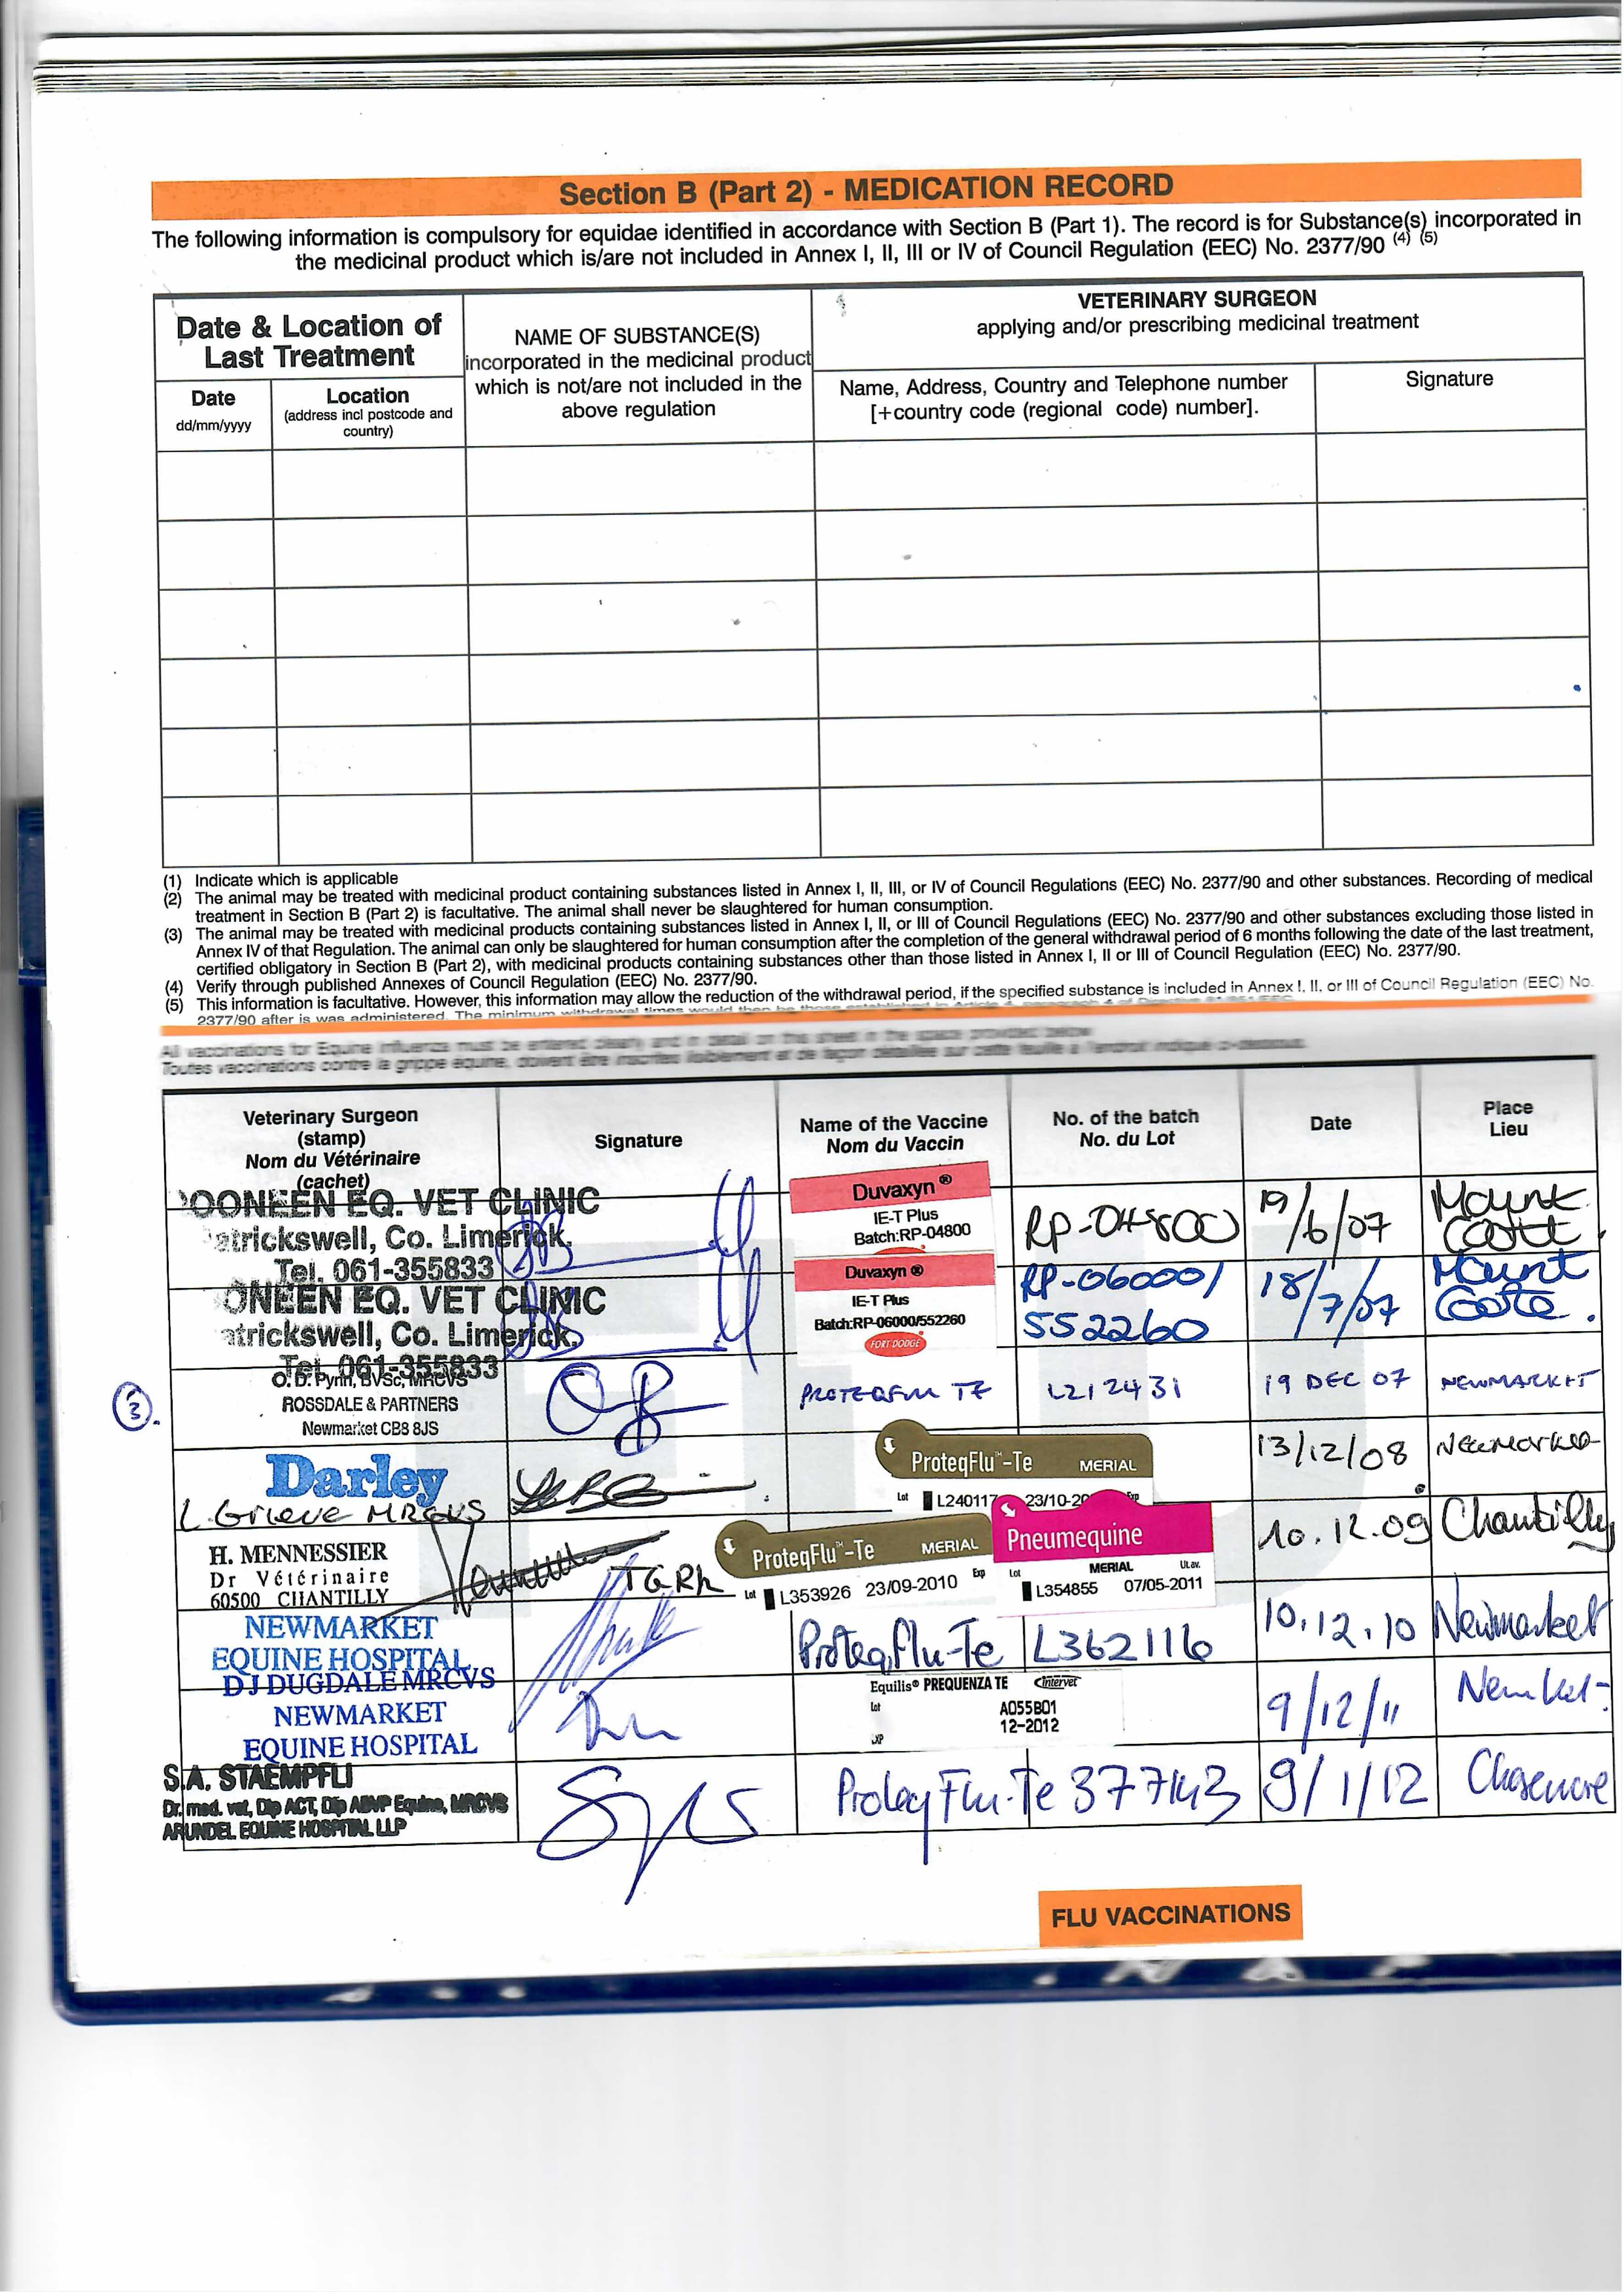 Section B (Part 2) - MEDICATION RECORD
The following information is compulsory for equidae identified in accordance with Section B (Part 1). The record is for Substance(s) incorporated in
the medicinal product which is/are not included in Annex I, II, III or IV of Council Regulation (EEC) No. 2377/90 (4) (5)
Date & Location of
Last Treatment
Date
dd/mm/yyyy
Location
(address incl postcode and
country)
NAME OF SUBSTANCE(S)
incorporated in the medicinal product
which is not/are not included in the
above regulation
VETERINARY SURGEON
applying and/or prescribing medicinal treatment
Name, Address, Country and Telephone number
[+country code (regional code) number].
Signature
(1) Indicate which is applicable
(2) The animal may be treated with medicinal product containing substances listed in Annex I, II, III, or IV of Council Regulations (EEC) No. 2377/90 and other substances. Recording of medical
treatment in Section B (Part 2) is facultative. The animal shall never be slaughtered for human consumption.
(3) The animal may be treated with medicinal products containing substances listed in Annex I, II, or III of Council Regulations (EEC) No. 2377/90 and other substances excluding those listed in
Annex IV of that Regulation. The animal can only be slaughtered for human consumption after the completion of the general withdrawal period of 6 months following the date of the last treatment,
certified obligatory in Section B (Part 2), with medicinal products containing substances other than those listed in Annex I, II or III of Council Regulation (EEC) No. 2377/90.
(4) Verify through published Annexes of Council Regulation (EEC) No. 2377/90.
(5) This information is facultative. However, this information may allow the reduction of the withdrawal period, if the specified substance is included in Annex I, II, or III of Council Regulation (EEC) No.
2377/90 after is was administered. The minimum withdrawal times would then be those established in Article 4, paragraph 4 of Directive
All vaccinations for Equine Influenza must be entered clearly and in detail on this sheet in the space provided below
Toutes vaccinations contre la grippe équine, doivent être inscrites lisiblement et de façon détaillée sur cette feuille à l'endroit indiqué ci-dessous.
Veterinary Surgeon
(stamp)
Nom du Vétérinaire
(cachet)
Signature
Name of the Vaccine
Nom du Vaccin
No. of the batch
No. du Lot
Date
Place
Lieu
OONEEN EQ. VET CLINIC
atrickswell, Co. Limerick.
Tel. 061-355833
Duvaxyn ®
IE-T Plus
Batch:RP-04800
RP-04800
19/6/07
Mount
Coote.
ONEEN EQ. VET CLINIC
atrickswell, Co. Limerick.
Tel. 061-355833
Duvaxyn ®
IE-T Plus
Batch:RP-06000/552260
FORT DODGE
RP-06000/
552260
18/7/07
Mount
Coote.
(3).
O. D. Pynn, BVSc, MRCVS
ROSSDALE & PARTNERS
Newmarket CB8 8JS
PROTEQFLU TE
L212431
19 DEC 07
NEWMARKET
Darley
L. Grieve MRCVS
ProteqFlu™-Te MERIAL
Lot L240117 23/10-20 Exp
13/12/08
Newmarket
H. MENNESSIER
Dr Vétérinaire
60500 CHANTILLY
ProteqFlu™-Te MERIAL
Lot L353926 23/09-2010 Exp
Pneumequine
MERIAL
Lot L354855 07/05-2011 Ut.av.
10.12.09
Chantilly
NEWMARKET
EQUINE HOSPITAL
DJ DUGDALE MRCVS
ProteqFlu-Te
L362116
10.12.10
Newmarket
NEWMARKET
EQUINE HOSPITAL
Equilis® PREQUENZA TE Intervet
Lot A055B01
EXP 12-2012
9/12/11
S.A. STAEMPFLI
Dr. med. vet, Dip ACT, Dip ABVP Equine, MRCVS
ARUNDEL EQUINE HOSPITAL LLP
ProteqFlu-Te
377143
9/1/12
FLU VACCINATIONS